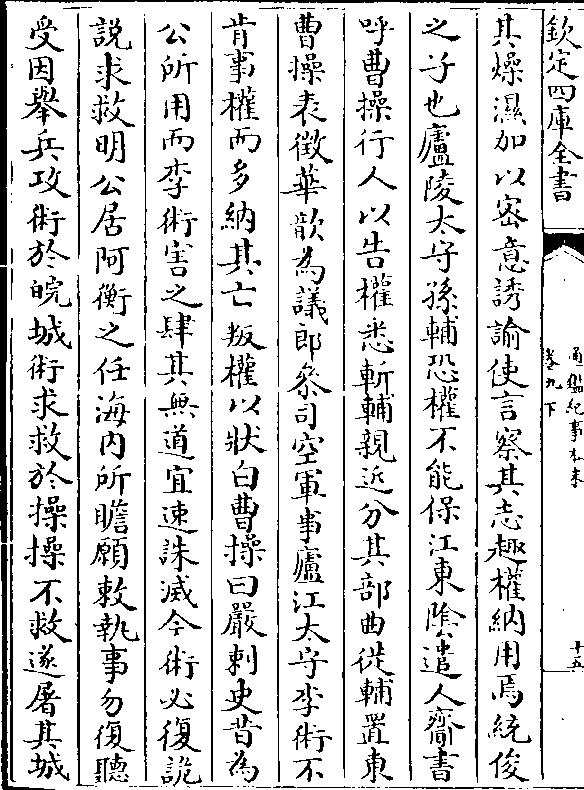 欽定四庫全書
通鑑紀事本末
卷九下
十五
其燥濕加以密意誘諭使言察其志趣權納用焉統俊
之子也廬陵太守孫輔恐權不能保江東陰遣人齎書
呼曹操行人以告權悉斬輔親近分其部曲徙輔置東
曹操表徵華歆為議郎參司空軍事廬江太守李術不
肯事權而多納其亡叛權以狀白曹操曰嚴刺史昔為
公所用而李術害之肆其無道宜速誅滅今術必復詭
説求救明公居阿衡之任海内所瞻願敕執事勿復聽
受因舉兵攻術於皖城術求救於操操不救遂屠其城